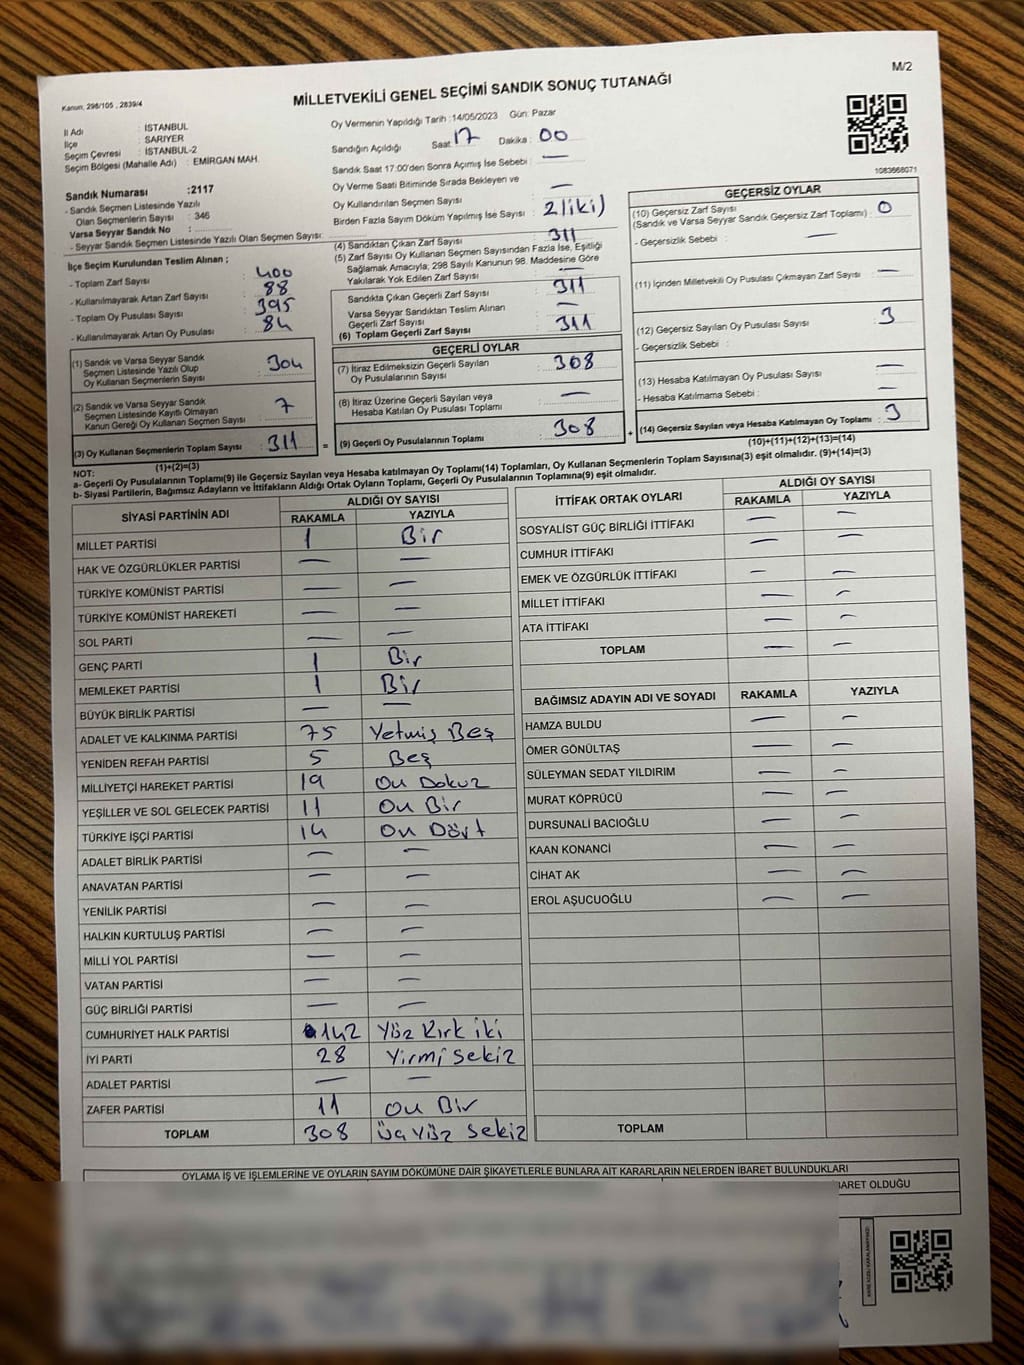 M/2
Kanun; 298/105 , 2839/4
MİLLETVEKİLİ GENEL SEÇİMİ SANDIK SONUÇ TUTANAĞI
İl Adı : İSTANBUL
İlçe : SARIYER
Seçim Çevresi : İSTANBUL-2
Seçim Bölgesi (Mahalle Adı) : EMİRGAN MAH.
Sandık Numarası :2117
- Sandık Seçmen Listesinde Yazılı
Olan Seçmenlerin Sayısı : 346
Varsa Seyyar Sandık No :
- Seyyar Sandık Seçmen Listesinde Yazılı Olan Seçmen Sayısı:
Oy Vermenin Yapıldığı Tarih :14/05/2023 Gün: Pazar
Sandığın Açıldığı Saat : 17 Dakika : 00
Sandık Saat 17:00'den Sonra Açımış İse Sebebi : —
Oy Verme Saati Bitiminde Sırada Bekleyen ve
Oy Kullandırılan Seçmen Sayısı : —
Birden Fazla Sayım Döküm Yapılmış İse Sayısı : 2(iki)
1083668071
İlçe Seçim Kurulundan Teslim Alınan ;
- Toplam Zarf Sayısı : 400
- Kullanılmayarak Artan Zarf Sayısı : 88
- Toplam Oy Pusulası Sayısı : 395
- Kullanılmayarak Artan Oy Pusulası : 84
(1) Sandık ve Varsa Seyyar Sandık
Seçmen Listesinde Yazılı Olup
Oy Kullanan Seçmenlerin Sayısı : 304
(2) Sandık ve Varsa Seyyar Sandık
Seçmen Listesinde Kayıtlı Olmayan
Kanun Gereği Oy Kullanan Seçmen Sayısı : 7
(3) Oy Kullanan Seçmenlerin Toplam Sayısı : 311 =
(1)+(2)=(3)
(4) Sandıktan Çıkan Zarf Sayısı : 311
(5) Zarf Sayısı Oy Kullanan Seçmen Sayısından Fazla İse, Eşitliği
Sağlamak Amacıyla; 298 Sayılı Kanunun 98. Maddesine Göre
Yakılarak Yok Edilen Zarf Sayısı : —
Sandıkta Çıkan Geçerli Zarf Sayısı : 311
Varsa Seyyar Sandıktan Teslim Alınan
Geçerli Zarf Sayısı : —
(6) Toplam Geçerli Zarf Sayısı : 311
GEÇERLİ OYLAR
(7) İtiraz Edilmeksizin Geçerli Sayılan
Oy Pusulalarının Sayısı : 308
(8) İtiraz Üzerine Geçerli Sayılan veya
Hesaba Katılan Oy Pusulası Toplamı : —
(9) Geçerli Oy Pusulalarının Toplamı : 308 +
GEÇERSİZ OYLAR
(10) Geçersiz Zarf Sayısı
(Sandık ve Varsa Seyyar Sandık Geçersiz Zarf Toplamı) : 0
- Geçersizlik Sebebi : —
(11) İçinden Milletvekili Oy Pusulası Çıkmayan Zarf Sayısı : —
(12) Geçersiz Sayılan Oy Pusulası Sayısı : 3
- Geçersizlik Sebebi :
(13) Hesaba Katılmayan Oy Pusulası Sayısı : —
- Hesaba Katılmama Sebebi : —
(14) Geçersiz Sayılan veya Hesaba Katılmayan Oy Toplamı : 3
(10)+(11)+(12)+(13)=(14)
NOT:
a- Geçerli Oy Pusulalarının Toplamı(9) ile Geçersiz Sayılan veya Hesaba katılmayan Oy Toplamı(14) Toplamları, Oy Kullanan Seçmenlerin Toplam Sayısına(3) eşit olmalıdır. (9)+(14)=(3)
b- Siyasi Partilerin, Bağımsız Adayların ve İttifakların Aldığı Ortak Oyların Toplamı, Geçerli Oy Pusulalarının Toplamına(9) eşit olmalıdır.
SİYASİ PARTİNİN ADI ALDIĞI OY SAYISI
RAKAMLA YAZIYLA
MİLLET PARTİSİ 1 Bir
HAK VE ÖZGÜRLÜKLER PARTİSİ — —
TÜRKİYE KOMÜNİST PARTİSİ — —
TÜRKİYE KOMÜNİST HAREKETİ — —
SOL PARTİ — —
GENÇ PARTİ 1 Bir
MEMLEKET PARTİSİ 1 Bir
BÜYÜK BİRLİK PARTİSİ — —
ADALET VE KALKINMA PARTİSİ 75 Yetmiş Beş
YENİDEN REFAH PARTİSİ 5 Beş
MİLLİYETÇİ HAREKET PARTİSİ 19 On Dokuz
YEŞİLLER VE SOL GELECEK PARTİSİ 11 On Bir
TÜRKİYE İŞÇİ PARTİSİ 14 On Dört
ADALET BİRLİK PARTİSİ — —
ANAVATAN PARTİSİ — —
YENİLİK PARTİSİ — —
HALKIN KURTULUŞ PARTİSİ — —
MİLLİ YOL PARTİSİ — —
VATAN PARTİSİ — —
GÜÇ BİRLİĞİ PARTİSİ — —
CUMHURİYET HALK PARTİSİ 142 Yüz Kırk iki
İYİ PARTİ 28 Yirmi sekiz
ADALET PARTİSİ — —
ZAFER PARTİSİ 11 On Bir
TOPLAM 308 üçyüz sekiz
İTTİFAK ORTAK OYLARI ALDIĞI OY SAYISI
RAKAMLA YAZIYLA
SOSYALİST GÜÇ BİRLİĞİ İTTİFAKI — —
CUMHUR İTTİFAKI — —
EMEK VE ÖZGÜRLÜK İTTİFAKI — —
MİLLET İTTİFAKI — —
ATA İTTİFAKI — —
TOPLAM — —
BAĞIMSIZ ADAYIN ADI VE SOYADI RAKAMLA YAZIYLA
HAMZA BULDU — —
ÖMER GÖNÜLTAŞ — —
SÜLEYMAN SEDAT YILDIRIM — —
MURAT KÖPRÜCÜ — —
DURSUNALİ BACIOĞLU — —
KAAN KONANCİ — —
CİHAT AK — —
EROL AŞUCUOĞLU — —
TOPLAM
OYLAMA İŞ VE İŞLEMLERİNE VE OYLARIN SAYIM DÖKÜMÜNE DAİR ŞİKAYETLERLE BUNLARA AİT KARARLARIN NELERDEN İBARET BULUNDUKLARI
BARET OLDUĞU